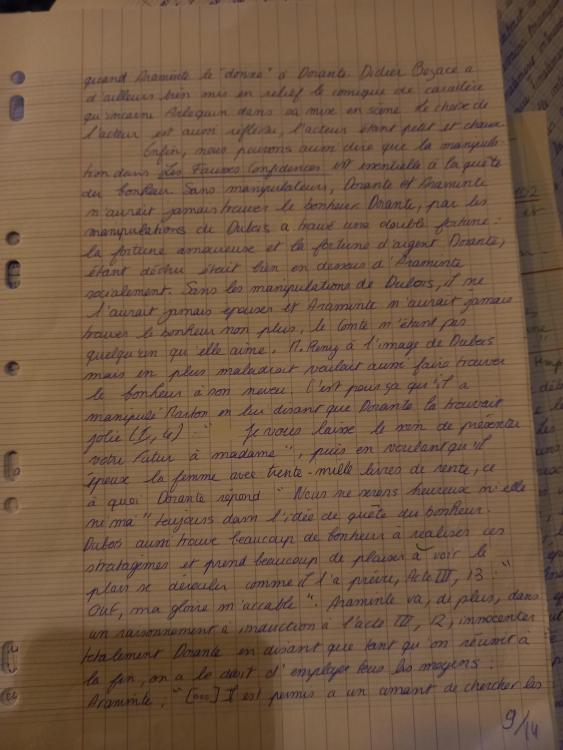 quand Araminte le "donne" à Dorante. Didier Bezace a
d'ailleurs bien mis en relief le comique de caractère
qu'incarne Arlequin dans sa mise en scène. Le choix de
l'acteur est aussi réfléchi, l'acteur étant petit et chauve.
Enfin, nous pouvons aussi dire que la manipula-
tion dans Les Fausses Confidences est essentielle à la quête
du bonheur. Sans manipulateurs, Dorante et Araminte
n'aurait jamais trouver le bonheur. Dorante, par les
manipulations de Dubois a trouvé une double fortune :
la fortune amoureuse et la fortune d'argent. Dorante,
étant déchu était bien en dessous d'Araminte
socialement. Sans les manipulations de Dubois, il ne
l'aurait jamais épouser et Araminte n'aurait jamais
trouver le bonheur non plus, le Comte n'étant pas
quelqu'un qu'elle aime. M. Remy à l'image de Dubois
mais en plus maladroit voulait aussi faire trouver
le bonheur à son neveu. C'est pour ça qu'il a
manipulé Marton en lui disant que Dorante la trouvait
jolie (I, 4) : " Je vous laisse le soin de présenter
votre futur à madame", puis en voulant qu'il
épouse la femme avec trente-mille livres de rente, ce
à quoi Dorante répond " Nous ne serons heureux ni elle
ni moi" toujours dans l'idée de quête du bonheur.
Dubois aussi trouve beaucoup de bonheur à réaliser ces
stratagèmes et prend beaucoup de plaisir à voir le
plan se dérouler comme il l'a prévu, Acte III, 13 : "
OUF, ma gloire m'accable". Araminte va, de plus, dans
un raisonnement à induction à l'acte III, 12, innocenter
totalement Dorante en disant que tant qu'on réussit à
la fin, on a le droit d'employer tous les moyens :
Araminte : "[ooo] Il est permis a un amant de chercher les
9/14